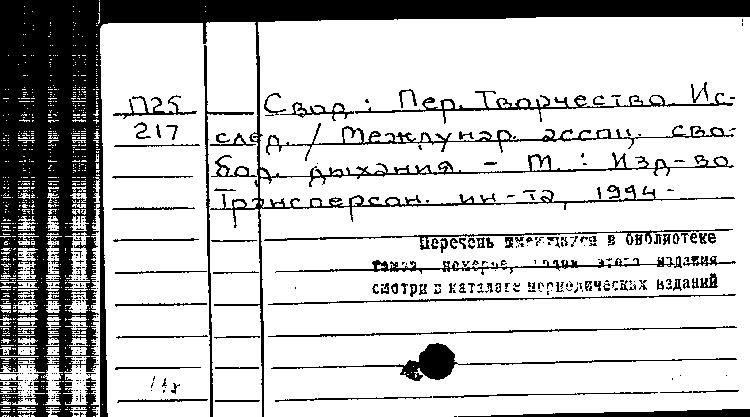 П25 Свод : Пер. Творчество. Ис-
217 след. / Междунар. ассоц. сво-
бод. дыхания. - М. : Изд-во
Трансперсон. ин-та, 1994 -
Перечень имеющихся в библиотеке
томов, номеров, годов этого издания
смотри в каталоге периодических изданий